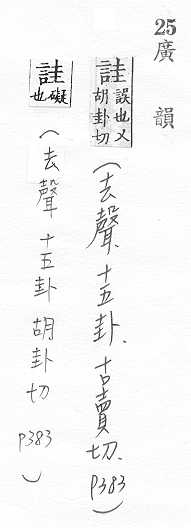 25廣韻
詿誤也又胡卦切(去聲、十五卦、古賣切、p383)
詿礙也(去聲 十五卦 胡卦切 p383)